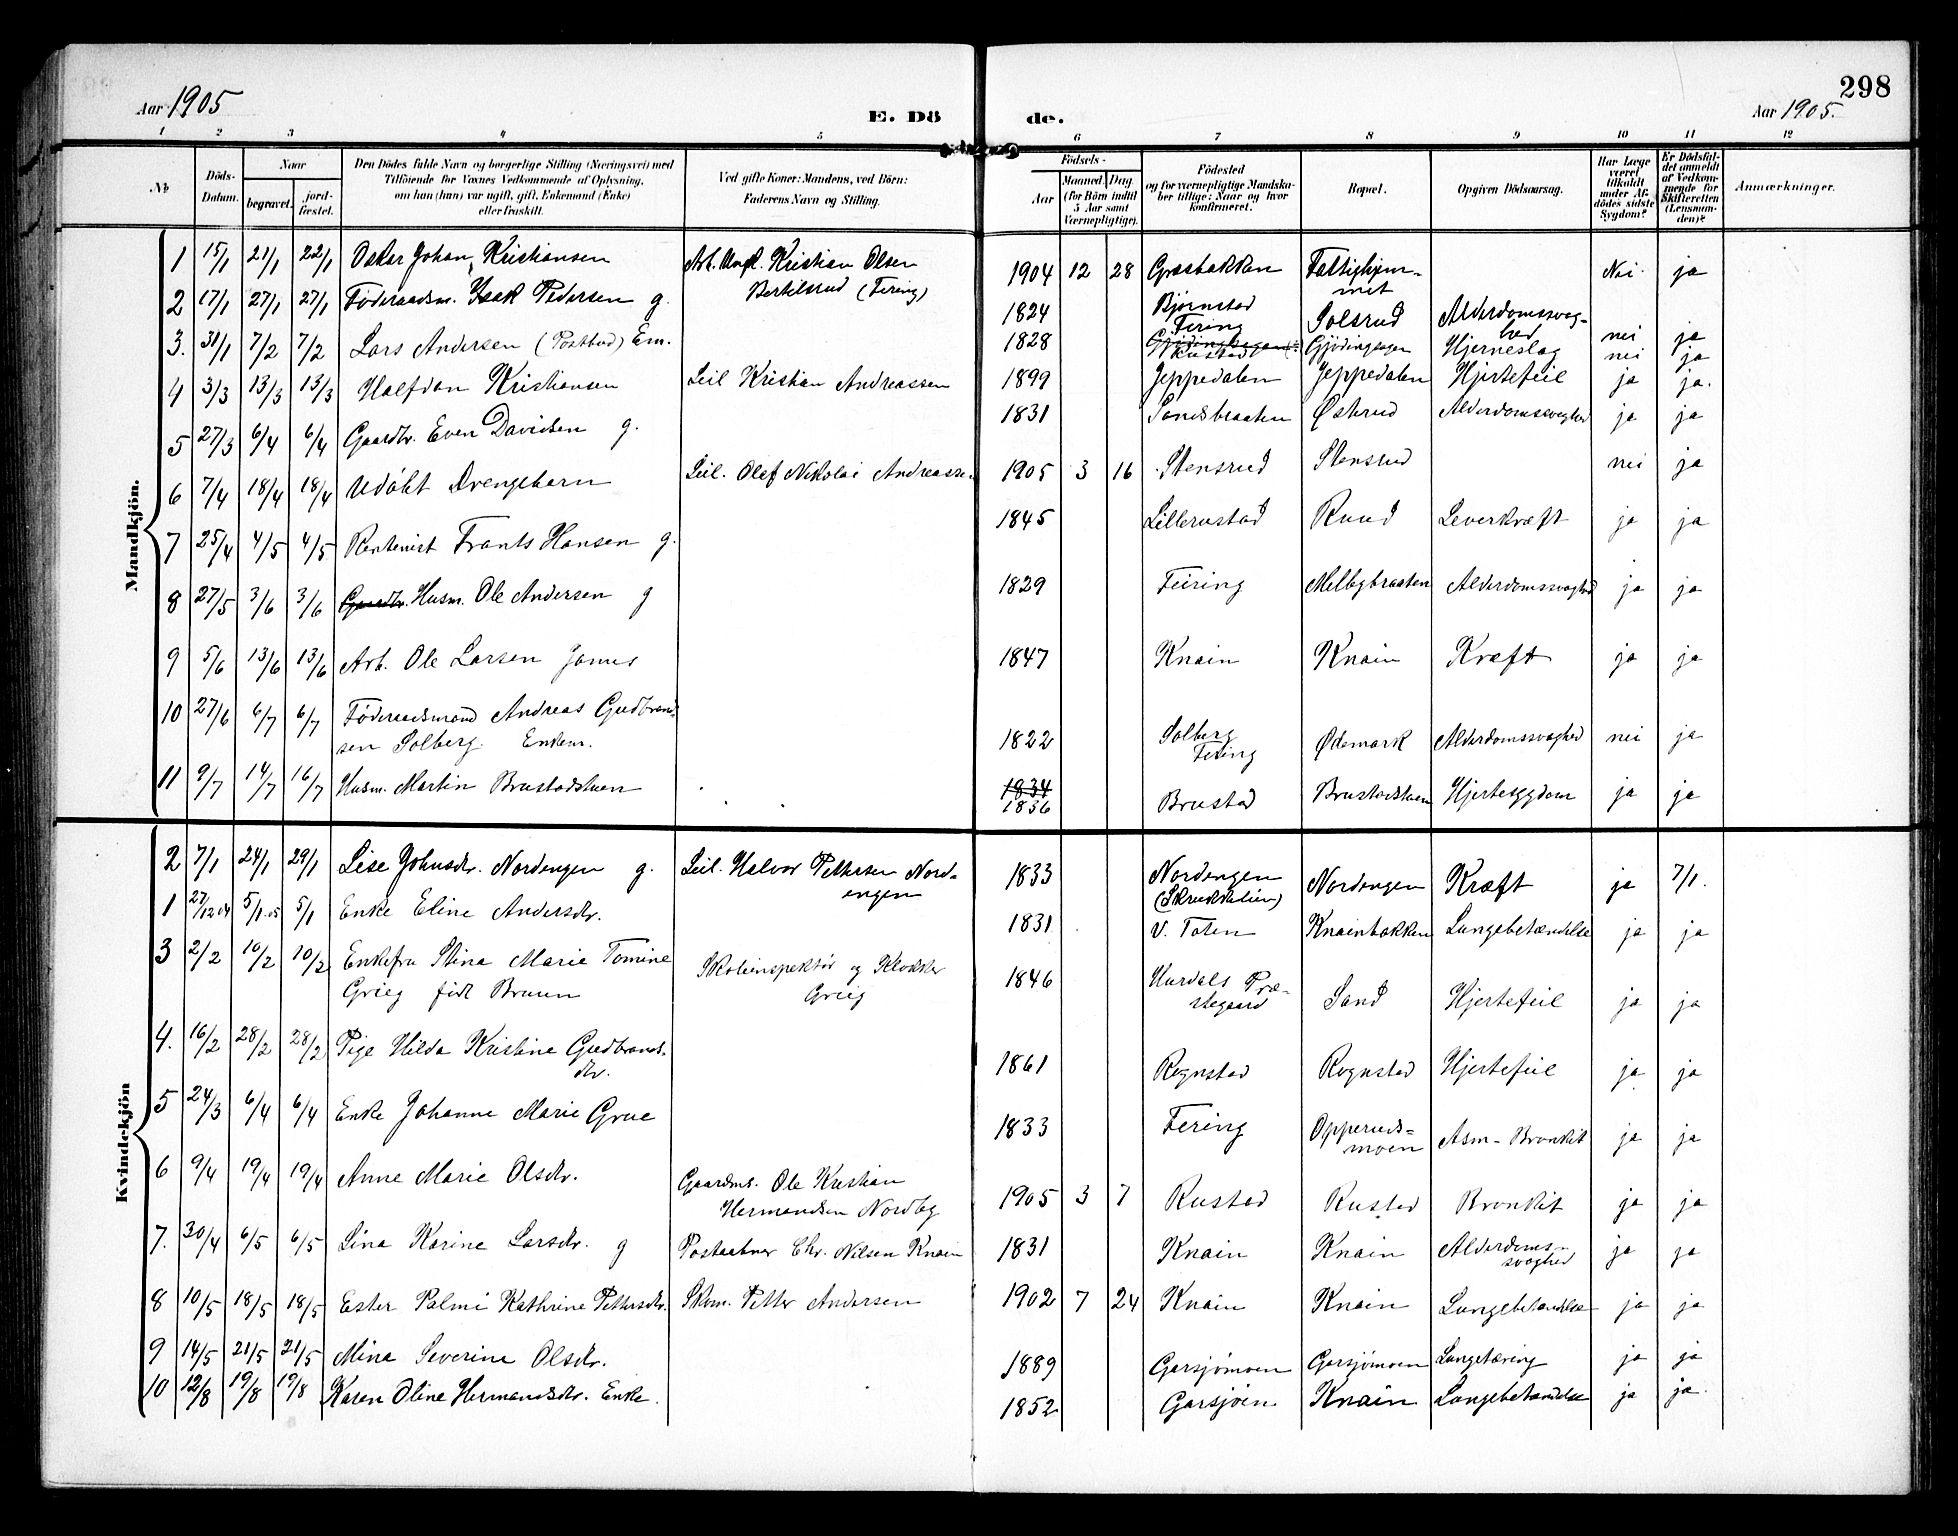 298
Aar 1905
E. Dö
de.
Aar 1905.
1 2 3 4 5 6 7 8 9 10 11 12
No
Döds-
Datum.
Naar
begravet.
jord-
fæstet.
Den Dödes fulde Navn og borgerlige Stilling (Næringsvei) med
Tilföiende for Voxnes Vedkommende af Oplysning,
om han (hun) var ugift, gift, Enkemand (Enke)
eller fraskilt.
Ved gifte Koner: Mandens, ved Börn:
Faderens Navn og Stilling.
Födsels-
Aar
Maaned. Dag
(for Börn indtil
5 Aar samt
Værnepligtige).
Födested
og for værnepligtige Mandska-
ber tillige: Naar og hvor
konfirmeret.
Bopæl.
Opgiven Dödsaarsag.
Har Læge
været
tilkaldt
under Af-
dödes sidste
Sygdom?
Er Dödsfal-
det anmeldt
af Vedkom-
mende for
Skifteretten
(Lensman-
den)?
Anmærkninger.
Mandkjön.
1 15/1 21/1 22/1 Oskar Johan Kristiansen Arb. Ungk. Kristian Olsen 1904 12 28 Græsbakken Fattighjem- Nei. ja
Bertilsrud (Fering) met
2 17/1 27/1 27/1 Föderaadsm. Isak Pedersen g. 1824 Björnstad Solsrud Alderdomssvag- nei ja
Fering hed
3. 31/1 7/2 7/2 Lars Andersen (Postbud) Em. 1828 Rustad Gjödingsagen Hjerneslag nei ja
4 3/3 13/3 13/3 Halfdan Kristiansen Leil Kristian Andreassen 1899 Jeppedalen Jeppedalen Hjertefeil ja ja.
5 27/3 6/4 6/4 Gaardbr. Even Davidsen g. 1831 Sandsbraaten Östrud Alderdomssvaghed ja ja
6 7/4 18/4 18/4 Udöbt Drengebarn Leil. Olef Nikolai Andreassen 1905 3 16 Stensrud Stensrud nei ja
7 25/4 4/5 4/5 Rentenist Frants Hansen g. 1845 Lillerustad Ruud Leverkræft ja ja
8 27/5 3/6 3/6 Gaardbr. Husm. Ole Andersen g 1829 Feiring Melbybraaten Alderdomssvaghed ja ja
9 5/6 13/6 13/6 Arb. Ole Larsen 1847 Knain Knain Kræft ja ja
10 27/6 6/7 6/7 Föderaadsmand Andreas Gudbrand-
sen Solberg. Enkem. 1822 Solberg Ödemark Alderdomssvaghed nei ja
Fering
11 9/7 14/7 16/7 Husm. Martin Brustadstuen 1834 Brustad Brustadstuen Hjertesygdom ja ja
1836
Kvindekjön
2 7/1 24/1 29/1 Lise Johnsdr. Nordengen g. Leil. Halvor Pettersen Nord- 1833 Nordengen Nordengen Kræft ja 7/1.
engen (Skrukkelien)
1 27/12 04 5/1 05 5/1 Enke Eline Andersdr. 1831 V. Toten Knainbakken Lungebetændelse ja ja
3 2/2 10/2 10/2 Enkefru Stina Marie Tomine Skoleinspektör og Klokker 1846 Hurdals Præ- Sand Hjertefeil ja ja
Grieg född Bruun Grieg stegaard
4. 16/2 28/2 28/2 Pige Hilda Kristine Gudbrands- 1861 Rognstad Rognstad Hjertefeil ja ja
dr.
5 24/3 6/4 6/4 Enke Johanne Marie Grue 1833 Fering Opperuds- Asm-Bronkit ja ja
moen
6 9/4 19/4 19/4 Anne Marie Olsdr. Gaardms. Ole Kristian 1905 3 7 Rustad Rustad Bronkit ja ja
Hermandsen Nordby
7. 30/4 6/5 6/5 Lina Karine Larsdr. g Postaabner Chr. Nilsen Knain 1831 Knain Knain Alderdoms- ja ja
svaghed
8 10/5 18/5 18/5 Ester Palmi Kathrine Pettersdr. Skom. Petter Andersen 1902 7 24 Knain Knain Lungebetændelse ja ja
9 14/5 21/5 21/5 Mina Severine Olsdr. 1889 Garsjömoen Garsjömoen Lungetæring ja ja
10 12/8 19/8 19/8 Karen Oline Hermandsdr. Enke. 1852 Garsjöen Knain Lungebetændelse ja ja